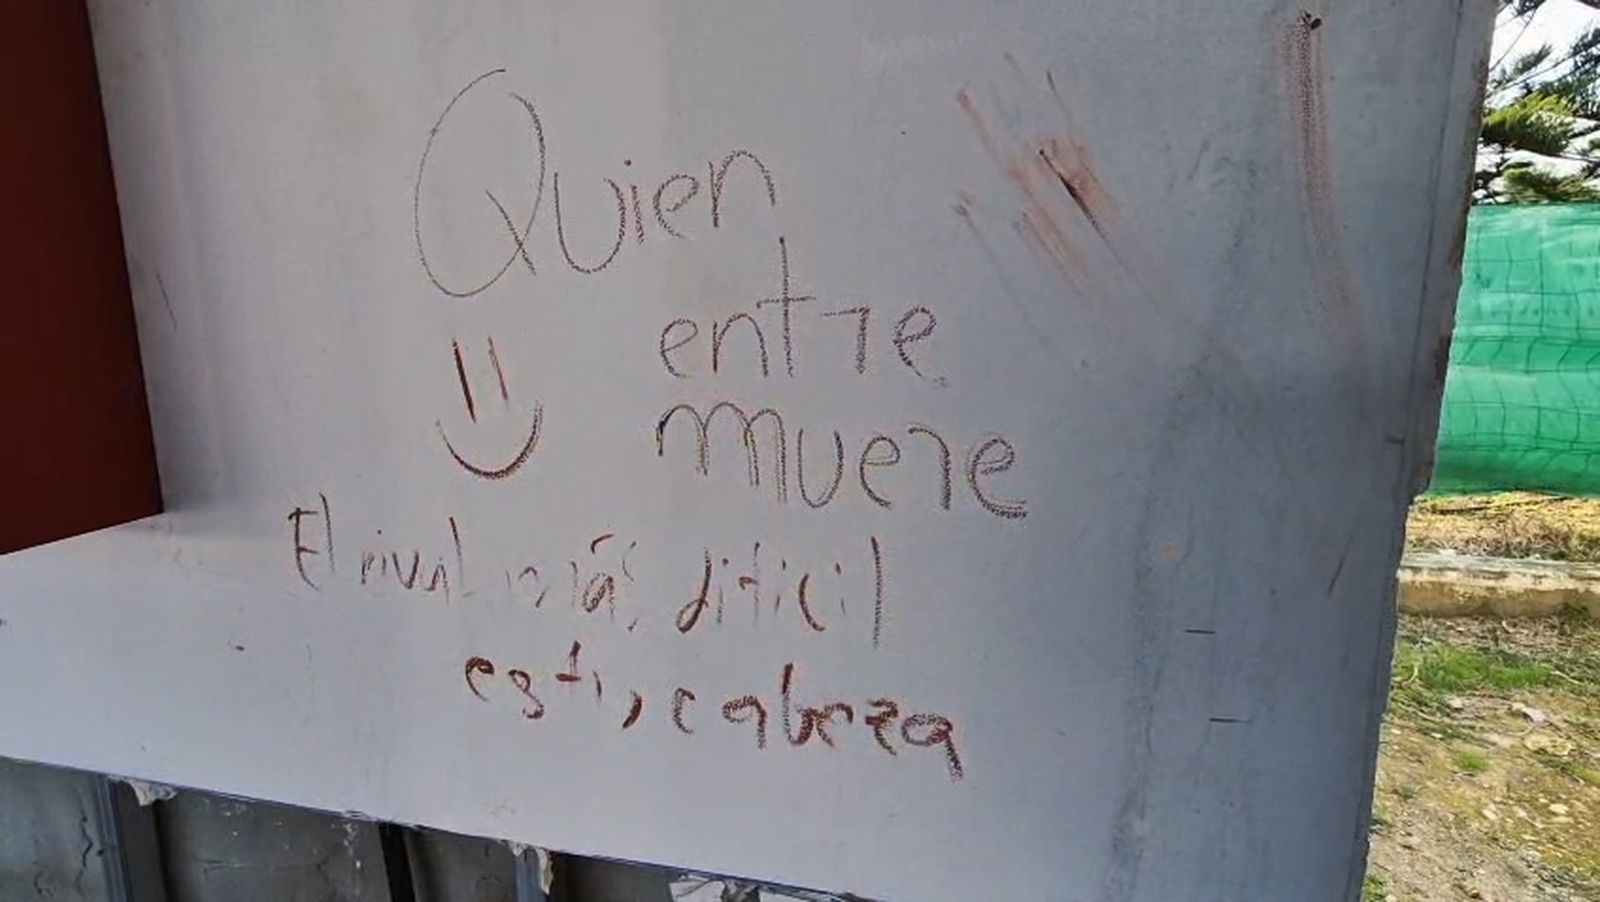 Quien
entre
muere
El rival más dificil
es tu cabeza